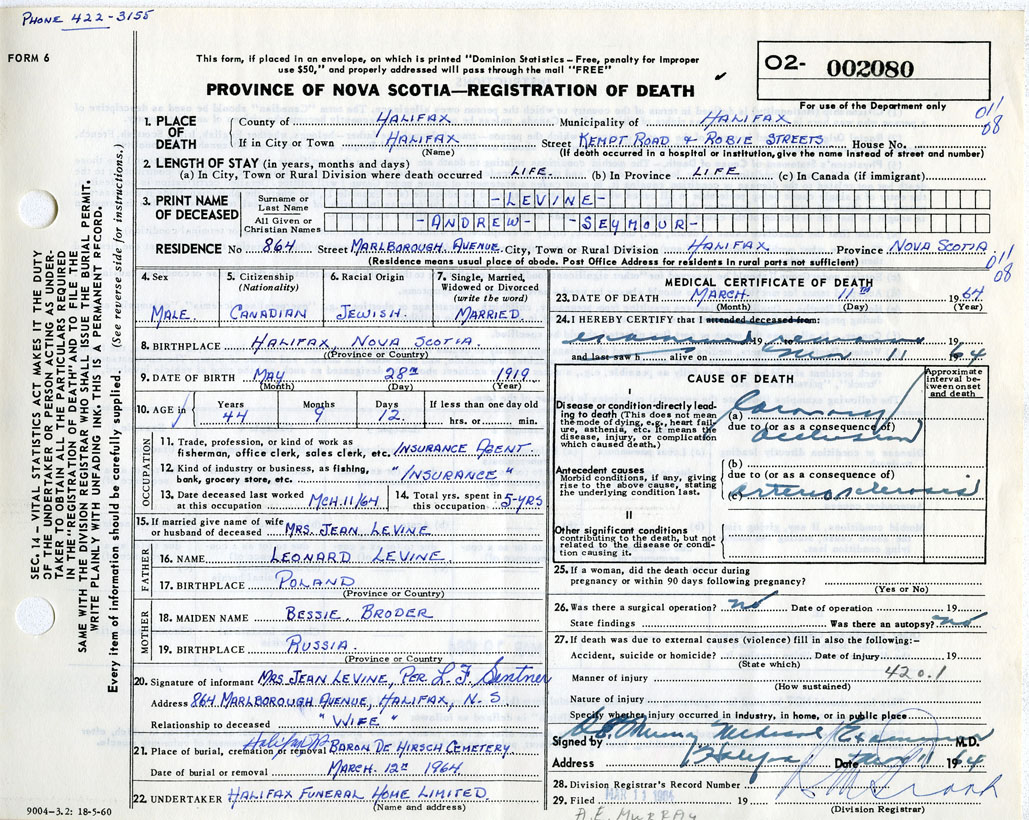 PHONE 422-3155
FORM 6
This form, if placed in an envelope, on which is printed "Dominion Statistics – Free, penalty for improper
use $50," and properly addressed will pass through the mail "FREE"
PROVINCE OF NOVA SCOTIA—REGISTRATION OF DEATH
02- 002080
For use of the Department only
011
08
1. PLACE OF DEATH
County of HALIFAX Municipality of HALIFAX
If in City or Town HALIFAX Street KEMPT ROAD & ROBIE STREETS House No.
(Name) (If death occurred in a hospital or institution, give the name instead of street and number)
2. LENGTH OF STAY (in years, months and days)
(a) In City, Town or Rural Division where death occurred LIFE. (b) In Province LIFE. (c) In Canada (if immigrant)
3. PRINT NAME OF DECEASED
Surname or Last Name -LEVINE-
All Given or Christian Names -ANDREW- -SEYMOUR-
RESIDENCE No. 864 Street MARLBOROUGH AVENUE. City, Town or Rural Division HALIFAX Province NOVA SCOTIA.
(Residence means usual place of abode. Post Office Address for residents in rural parts not sufficient)
011
08
4. Sex
MALE.
5. Citizenship (Nationality)
CANADIAN
6. Racial Origin
JEWISH.
7. Single, Married, Widowed or Divorced (write the word)
MARRIED.
8. BIRTHPLACE HALIFAX, NOVA SCOTIA.
(Province or Country)
9. DATE OF BIRTH MAY 28th 1919
(Month) (Day) (Year)
10. AGE in
Years Months Days If less than one day old
44 9 12. hrs. or min.
OCCUPATION
11. Trade, profession, or kind of work as
fisherman, office clerk, sales clerk, etc. INSURANCE AGENT
12. Kind of industry or business, as fishing,
bank, grocery store, etc. "INSURANCE"
13. Date deceased last worked at this occupation MCH.11/64
14. Total yrs. spent in this occupation 5-YRS
15. If married give name of wife
or husband of deceased MRS JEAN LEVINE
FATHER
16. NAME LEONARD LEVINE
17. BIRTHPLACE POLAND
(Province or Country)
MOTHER
18. MAIDEN NAME BESSIE BRODER
19. BIRTHPLACE RUSSIA.
(Province or Country
20. Signature of informant MRS JEAN LEVINE, PER L.F. Sentner
Address 864 MARLBOROUGH AVENUE, HALIFAX, N.S
Relationship to deceased "WIFE"
21. Place of burial, cremation or removal Halifax BARON DE HIRSCH CEMETERY
Date of burial or removal MARCH. 12th 1964.
22. UNDERTAKER HALIFAX FUNERAL HOME LIMITED.
(Name and address)
MEDICAL CERTIFICATE OF DEATH
23. DATE OF DEATH MARCH 11th 1964
(Month) (Day) (Year)
24. I HEREBY CERTIFY that I attended deceased from:
examined 19 remains
and last saw h alive on Mar 11 64
CAUSE OF DEATH
Approximate interval between onset and death
I
Disease or condition directly leading to death (This does not mean the mode of dying, e.g., heart failure, asthenia, etc. It means the disease, injury, or complication which caused death.)
(a) Coronary
due to (or as a consequence of)
occlusion
Antecedent causes
Morbid conditions, if any, giving rise to the above cause, stating the underlying condition last.
(b)
due to (or as a consequence of)
(c) arteriosclerosis
II
Other significant conditions
contributing to the death, but not related to the disease or condition causing it.
25. If a woman, did the death occur during
pregnancy or within 90 days following pregnancy?
(Yes or No)
26. Was there a surgical operation? no Date of operation 19
State findings Was there an autopsy? no
27. If death was due to external causes (violence) fill in also the following:–
Accident, suicide or homicide? Date of injury 19
(State which)
Manner of injury 420.1
(How sustained)
Nature of injury
Specify whether injury occurred in industry, in home, or in public place
Signed by Murray Medical Examiner M.D.
Address Halifax Date Mar 11 1964
28. Division Registrar's Record Number
29. Filed MAR 11 1964 19
(Division Registrar)
A.E. MURRAY
9004–3.2: 18-5-60
SEC. 14 – VITAL STATISTICS ACT MAKES IT THE DUTY
OF THE UNDERTAKER OR PERSON ACTING AS UNDER-
TAKER TO OBTAIN ALL THE PARTICULARS REQUIRED
IN THE "REGISTRATION OF DEATH" AND TO FILE THE
SAME WITH THE DIVISION REGISTRAR WHO SHALL ISSUE THE BURIAL PERMIT.
WRITE PLAINLY WITH UNFADING INK. THIS IS A PERMANENT RECORD.
Every item of information should be carefully supplied. (See reverse side for instructions.)